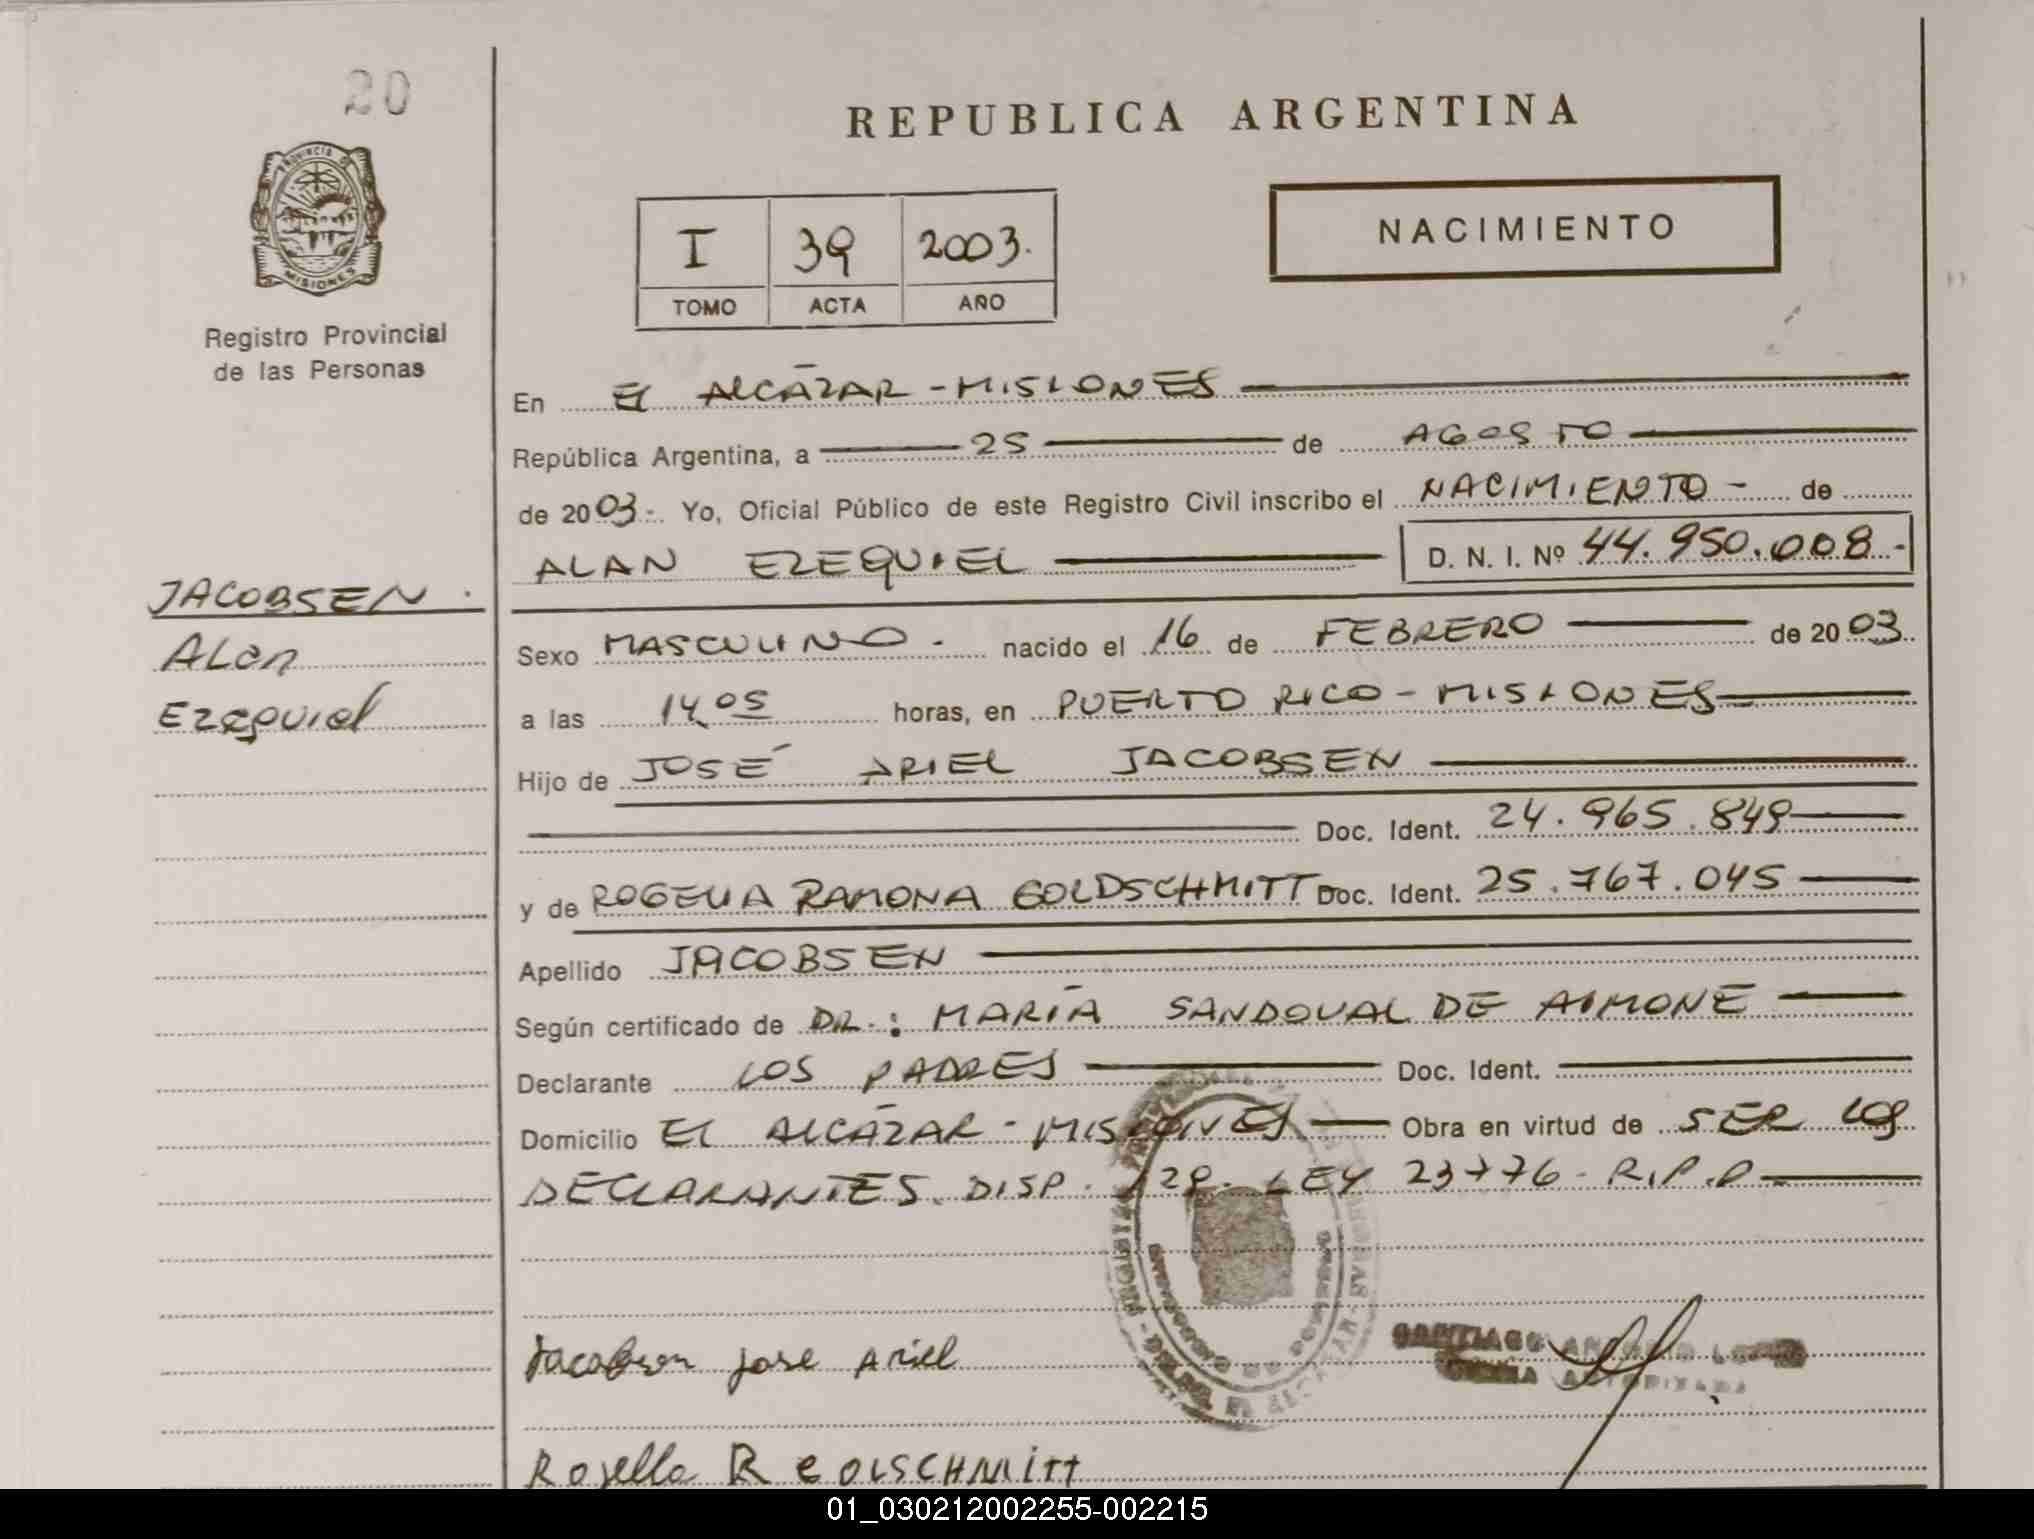 20
REPUBLICA ARGENTINA
PROVINCIA DE
MISIONES
Registro Provincial
de las Personas
I 39 2003.
TOMO ACTA AÑO
NACIMIENTO
En EL ALCÁZAR - MISIONES
República Argentina, a 25 de AGOSTO
de 2003-. Yo, Oficial Público de este Registro Civil inscribo el NACIMIENTO - de
ALAN EZEQUIEL D. N. I. Nº 44.950.008.-
JACOBSEN.
Alan
Ezequiel
Sexo MASCULINO. nacido el 16 de FEBRERO de 2003
a las 14,05 horas, en PUERTO RICO - MISIONES
Hijo de JOSÉ ARIEL JACOBSEN
Doc. Ident. 24.965.849
y de ROGELIA RAMONA GOLDSCHMITT Doc. Ident. 25.767.045
Apellido JACOBSEN
Según certificado de DR.: MARÍA SANDOVAL DE AIMONE
Declarante LOS PADRES Doc. Ident.
Domicilio EL ALCÁZAR - MISIONES Obra en virtud de SER LOS
DECLARANTES. DISP. 129. LEY 23776- R.P.P
Jacobsen jose Ariel
SANTIAGO
AUTORIZADA
R GOLSCHMITT
01_030212002255-002215